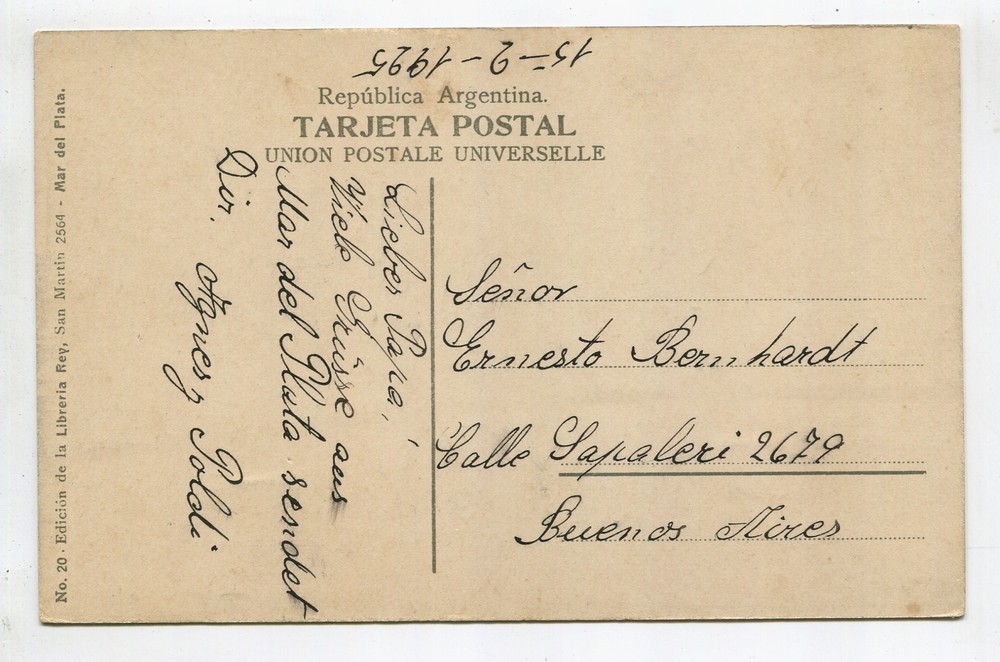 15-2-1925
República Argentina.
TARJETA POSTAL
UNION POSTALE UNIVERSELLE
Lieber Papa!
Viele Grüsse aus
Mar del Plata sendet
Dir. Agnes y Poldi
Señor
Ernesto Bernhardt
Calle Sapaleri 2679
Buenos Aires
No. 20 - Edición de la Libreria Rey, San Martin 2564 - Mar del Plata.